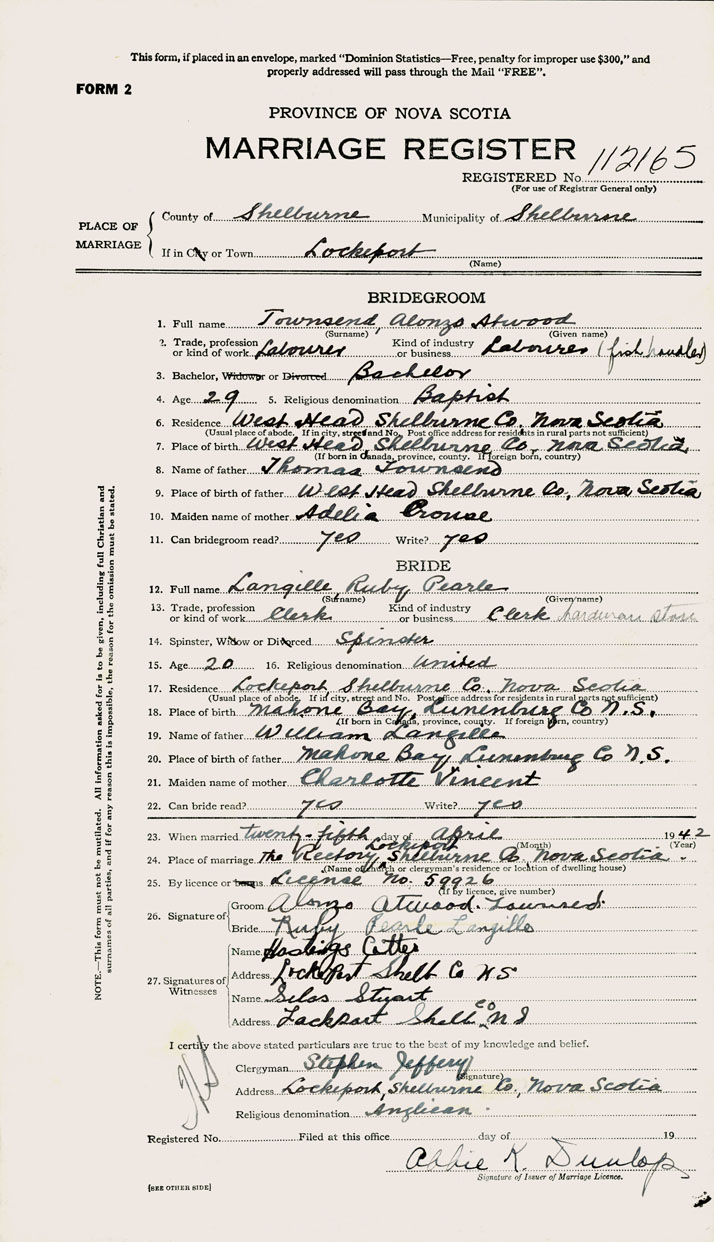 This form, if placed in an envelope, marked "Dominion Statistics—Free, penalty for improper use $300," and
properly addressed will pass through the Mail "FREE".
FORM 2
PROVINCE OF NOVA SCOTIA
MARRIAGE REGISTER
REGISTERED No. 112165
(For use of Registrar General only)
PLACE OF MARRIAGE
County of Shelburne Municipality of Shelburne
If in City or Town Lockeport
(Name)
BRIDEGROOM
1. Full name Townsend, Alonzo Atwood
(Surname) (Given name)
2. Trade, profession or kind of work Labourer Kind of industry or business Labourer (fish handler)
3. Bachelor, Widower or Divorced Bachelor
4. Age 29 5. Religious denomination Baptist
6. Residence West Head Shelburne Co. Nova Scotia
(Usual place of abode. If in city, street and No. Post office address for residents in rural parts not sufficient)
7. Place of birth West Head, Shelburne Co, Nova Scotia
(If born in Canada, province, county. If foreign born, country)
8. Name of father Thomas Townsend
9. Place of birth of father West Head Shelburne Co, Nova Scotia
10. Maiden name of mother Adelia Crouse
11. Can bridegroom read? yes Write? yes
BRIDE
12. Full name Langille, Ruby Pearle
(Surname) (Given name)
13. Trade, profession or kind of work Clerk Kind of industry or business Clerk hardware store
14. Spinster, Widow or Divorced Spinster
15. Age 20 16. Religious denomination United
17. Residence Lockeport, Shelburne Co. Nova Scotia
(Usual place of abode. If in city, street and No. Post office address for residents in rural parts not sufficient)
18. Place of birth Mahone Bay, Lunenburg Co N.S.
(If born in Canada, province, county. If foreign born, country)
19. Name of father William Langille
20. Place of birth of father Mahone Bay, Lunenburg Co N.S.
21. Maiden name of mother Charlotte Vincent
22. Can bride read? yes Write? yes
23. When married twenty-fifth day of April 1942
(Month) (Year)
Lockeport
24. Place of marriage The Rectory, Shelburne Co, Nova Scotia.
(Name of church or clergyman's residence or location of dwelling house)
25. By licence or banns License No. 59926
(If by licence, give number)
26. Signature of
Groom Alonzo Atwood Townsend
Bride Ruby Pearle Langille
27. Signatures of Witnesses
Name Hastings Cotter
Address Lockeport Shelb Co NS
Name Silas Stuart
Address Lockport Shelb Co NS
I certify the above stated particulars are true to the best of my knowledge and belief.
Clergyman Stephen Jeffery
(Signature)
Address Lockeport, Shelburne Co., Nova Scotia
Religious denomination Anglican.
Registered No. Filed at this office day of 19
Abbie K. Dunlop
Signature of Issuer of Marriage Licence.
(SEE OTHER SIDE)
NOTE.—This form must not be mutilated. All information asked for is to be given, including full Christian and
surnames of all parties, and if for any reason this is impossible, the reason for the omission must be stated.